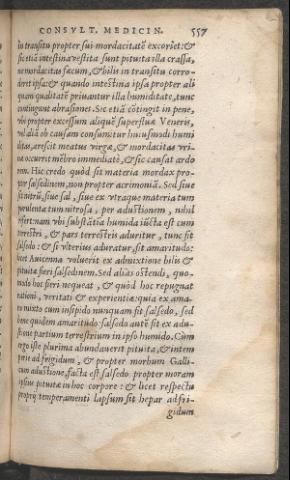 CONSVLT. MEDICIN. 557
in transitu propter sui mordacitatē excoriēt: &
sic etiā intestina restita sunt pituita illa crassa,
ne mordacitas sacum, & bilis in transitu corro-
deret ipsa: & quando intestina ipsa propter ali
quam qualitatē priuantur illa humiditate, tunc
contingunt abrasiones. Sic etiā cōtingit in pene,
vbi propter excessum aliquē superfluæ Veneris,
vel aliā ob causam consumitur huiusmodi humi
ditas, arescit meatus virgæ, & mordacitas vri-
næ occurrit mēbro immediatè, & sic causat ardo
rem. Hic credo quòd sit materia mordax pro-
pter salsedinem, non propter acrimoniā. Sed siue
sit nitrū, siue sal, siue ex vtraque materia tum
purulenta tum nitrosa, per adustionem, nihil
refert: nam vbi substātia humida iūcta est cum
terrestri, & pars terrestris aduritur, tunc sit
salsedo: & si vlterius aduratur, sit amaritudo:
licet Auicenna voluerit ex admixtione bilis &
pituitæ fieri salsedinem. Sed aliàs ostendi, quo-
modo hoc fieri nequeat, & quòd hoc repugnat
rationi, veritati & experientiæ: quia ex ama-
ro mixto cum insipido nunquam fit salsedo, sed
bene quidem amaritudo: salsedo autē fit ex adu-
stione partium terrestrium in ipso humido. Cùm
ergo iste plurimā abundauerit pituita, & intem
perie ad frigidum, & propter morbum Galli-
cum adustione, facta est salsedo propter moram
ipsius pituitæ in hoc corpore: & licet respectu
proprij temperamenti lapsum sit hepar ad fri-
gidum